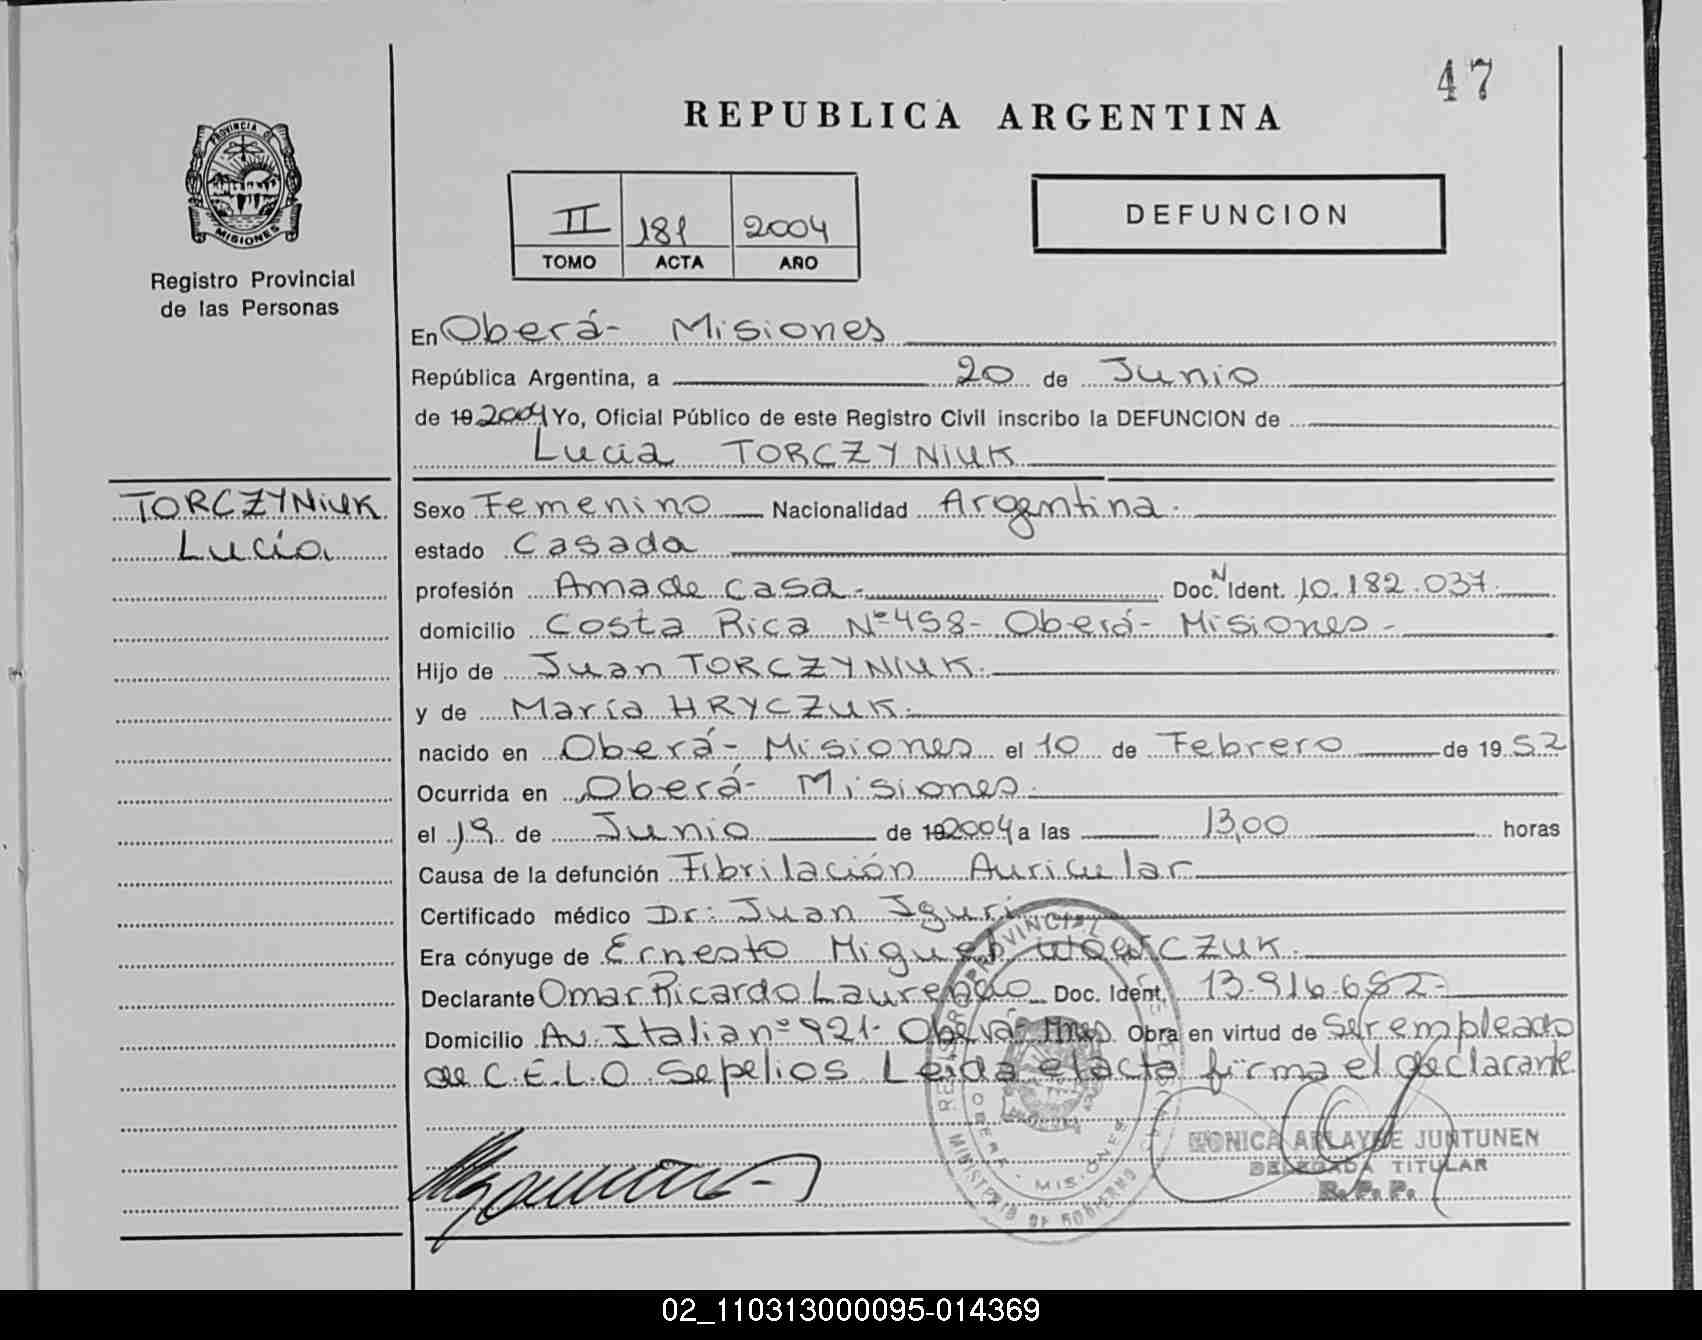 47
REPUBLICA ARGENTINA
PROVINCIA DE
MISIONES
Registro Provincial
de las Personas
II 181 2004
TOMO ACTA AÑO
DEFUNCION
En Oberá- Misiones
República Argentina, a 20 de Junio
de 19 2004 Yo, Oficial Público de este Registro Civil inscribo la DEFUNCION de
Lucia TORCZYNIUK
TORCZYNIUK
Lucía
Sexo Femenino Nacionalidad Argentina.
estado Casada
profesión Ama de casa.- Doc. N Ident. 10.182.037.
domicilio Costa Rica Nº 458- Oberá- Misiones-
Hijo de Juan TORCZYNIUK.
y de María HRYCZUK.
nacido en Oberá- Misiones el 10 de Febrero de 1952
Ocurrida en Oberá- Misiones.
el 19 de Junio de 19 2004 a las 13,00 horas
Causa de la defunción Fibrilación Auricular
Certificado médico Dr: Juan Iguri
Era cónyuge de Ernesto Miguel
Declarante Omar Ricardo Doc. Ident. 13.916.682-
Domicilio Av. Italia nº 921- Oberá- Mnes Obra en virtud de Ser empleado
de C.E.L.O. Sepelios Leida el acta firma el declarante
REGISTRO PROVINCIAL DE LAS
OBERA - MISIONES
MINISTERIO DE GOBIERNO
MONICA JUNTUNEN
DELEGADA TITULAR
R. P. P.
02_110313000095-014369